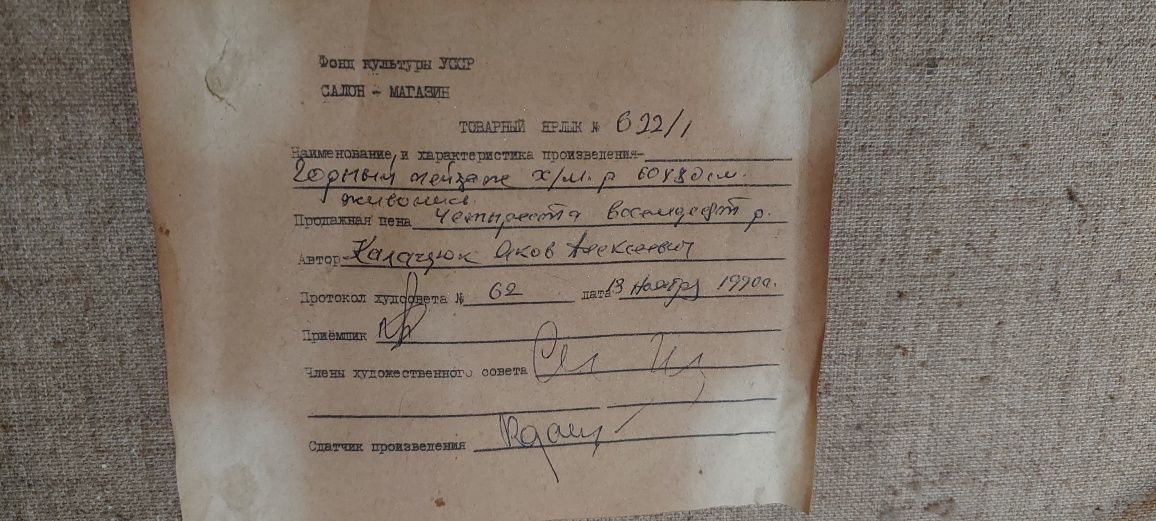 Фонд культуры УССР
САЛОН - МАГАЗИН
ТОВАРНЫЙ ЯРЛЫК № 622/1
Наименование и характеристика произведения-
Горный пейзаж х/м. р 60х80см.
живопись
Продажная цена Четыреста восемьдесят р.
Автор- Яков Алексеевич
Протокол худсовета № 62 дата 13 ноября 1990г.
Приёмщик
Члены художественного совета
Сдатчик произведения